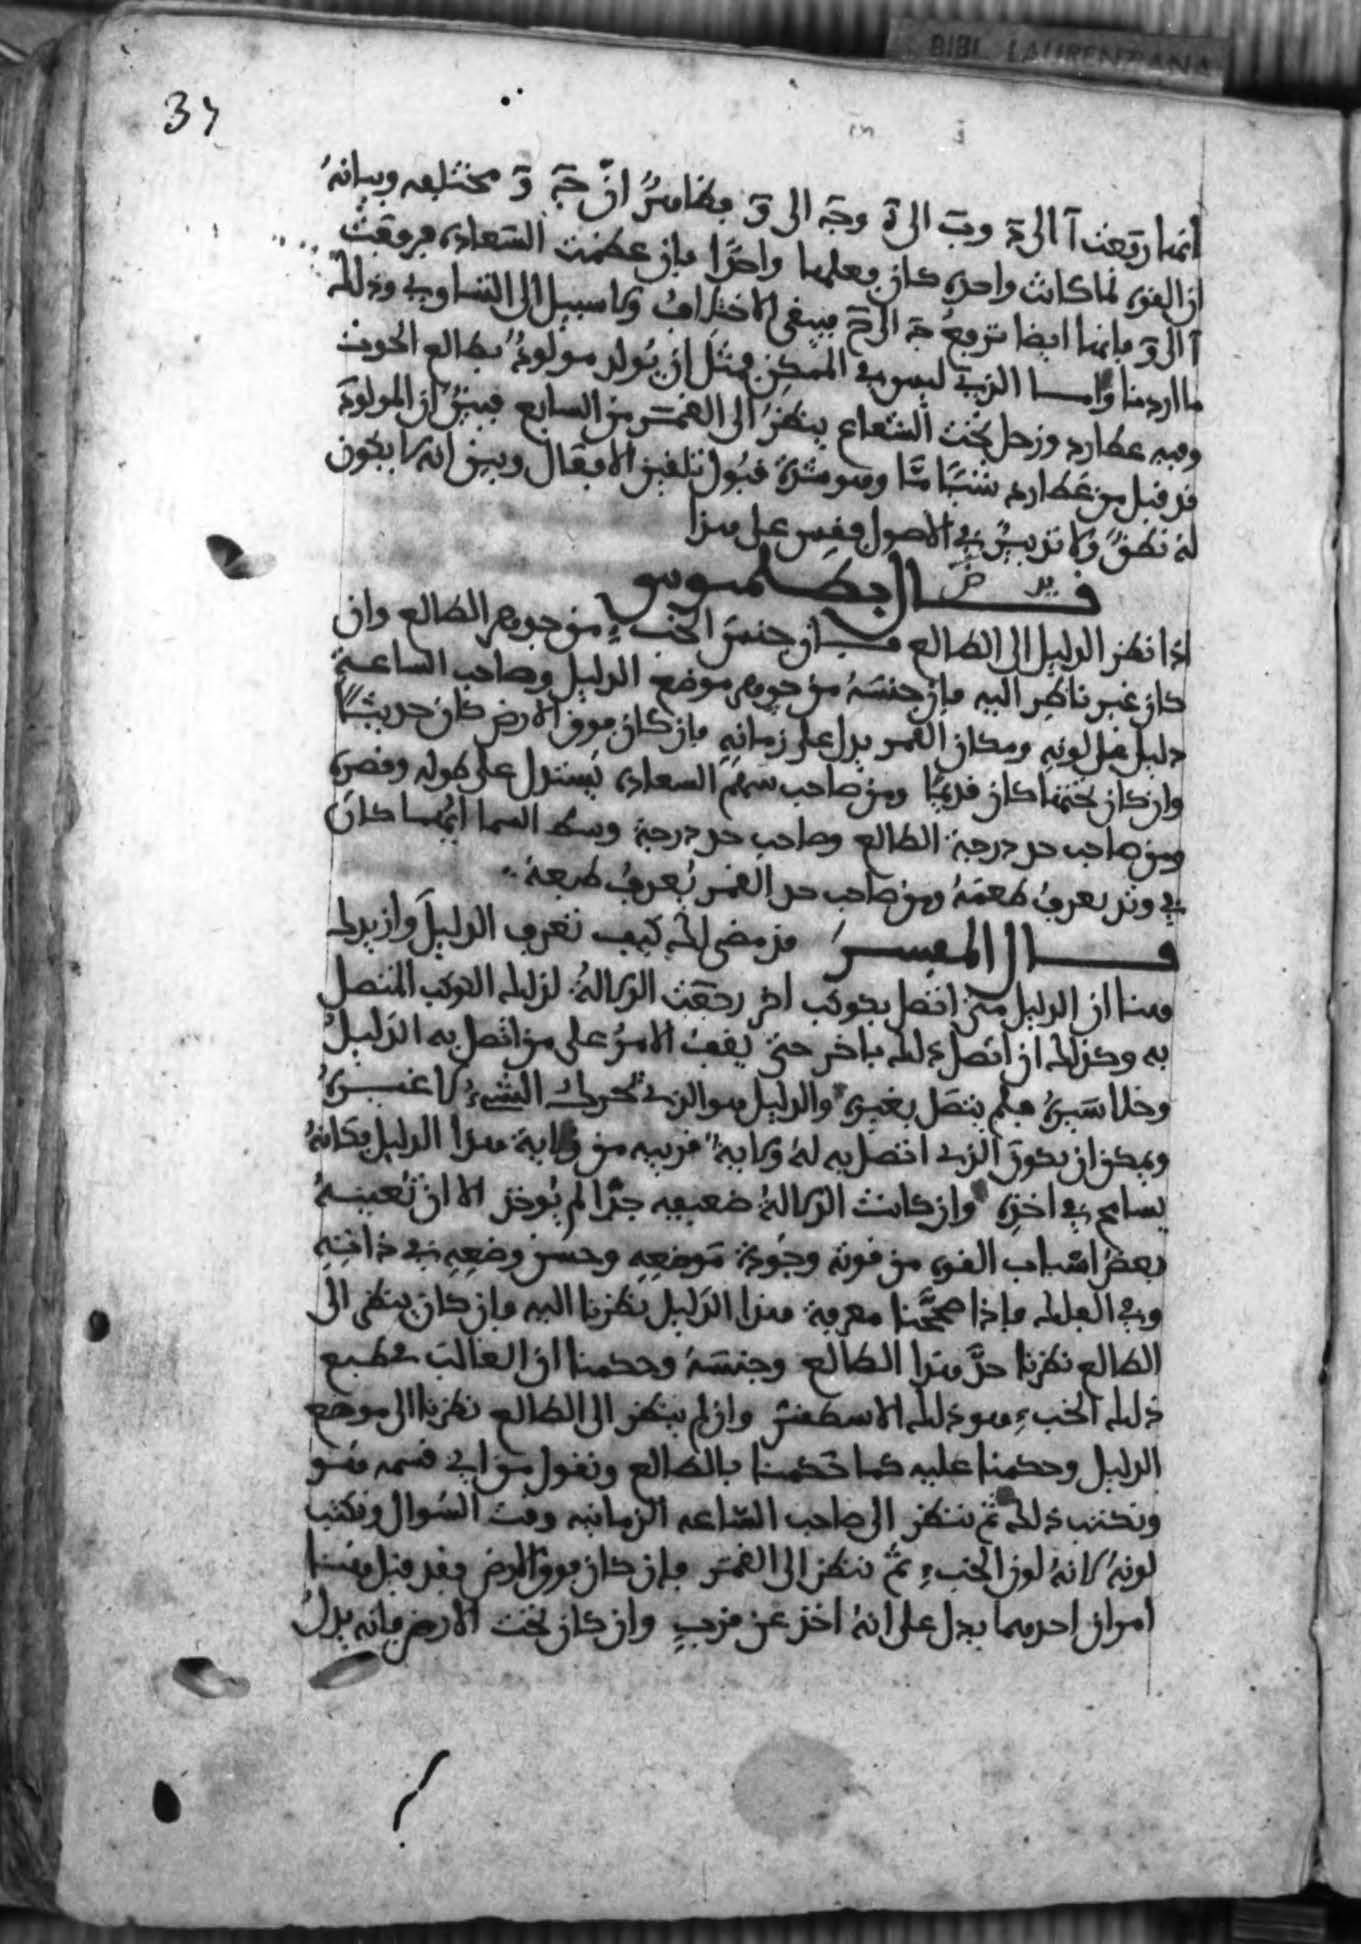 BIBL. LAURENZIANA
37
انها رفعت آ الى د وب الى ة وجه الى و فظاهر ان جه و مختلفه وبيانه
ان القوى لما كانت واحدى كان فعلها واحدا فان عظمت السعادى فرفعت
آ الى و فانها ايضا ترفع جه الى ح فيبقى الاختلاف ولا سبيل الى التساوي وذلك
ما اردنا واما الذي ليس في الممكن فمثل ان يولد مولود بطالع الحوت
وفيه عطارد وزحل تحت الشعاع ينظر الى القمر من السابع فبين ان المولود
قد قبل من عطارد شيا ما وهو مثل قبول تلقين الاطفال وبين انه لا يكون
له نطق ولا تدبير في الاصول فقس على هذا
قال بطلميوس
اذا نظر الدليل الى الطالع فان جنس الخبء من جوهر الطالع وان
كان غير ناظر اليه فان جنسه من جوهر موضع الدليل وصاحب الساعة
دليل على لونه ومكان القمر يدل على زمانه فان كان فوق الارض كان حديثا
وان كان تحتها كان قديما ومن صاحب سهم السعادى يستدل على طوله وقصرى
ومن صاحب حد درجة الطالع وصاحب حد درجة وسط السما ايهما كان
في وتد يعرف طعمه ومن صاحب حد القمر يعرف طبعه
قال المفسر قد مضى لك كيف تعرف الدليل وازيدك
هنا ان الدليل متى اتصل بكوكب اخر رجعت الدلالة لذلك الكوكب المتصل
به وكذلك ان اتصل ذلك باخر حتى يقف الامر على من اتصل به الدليل
وخلا سيرى فلم يتصل بغيرى والدليل هو الذي تحرك الشيء لا غيرى
ويمكن ان يكون الذي اتصل به له ولاية قريبه من ولاية هذا الدليل فكانه
يسامح في اخذى وان كانت الدلالة ضعيفه جدا لم يوخذ الا ان تعينه
بعض اسباب القوى من قوته وجودة موضعه وحسن وضعه في ذاته
وفي الفلك فاذا صححنا معرفة هذا الدليل نظرنا اليه فان كان ينظر الى
الطالع نظرنا حد هذا الطالع وجنسه وحكمنا ان الغالب على طبع
ذلك الخبء هو ذلك الاسطقس وان لم ينظر الى الطالع نظرنا الى موضع
الدليل وحكمنا عليه كما حكمنا بالطالع ونقول من اي قسمه هو
ونكتب ذلك ثم ننظر الى صاحب الساعه الزمانيه وقت السوال ونكتب
لونه لانه لون الخبء ثم ننظر الى القمر فان كان فوق الارض فقد قيل فيه هنا
امران احدهما يدل على انه اخذ عن قرب وان كان تحت الارض فانه يدل